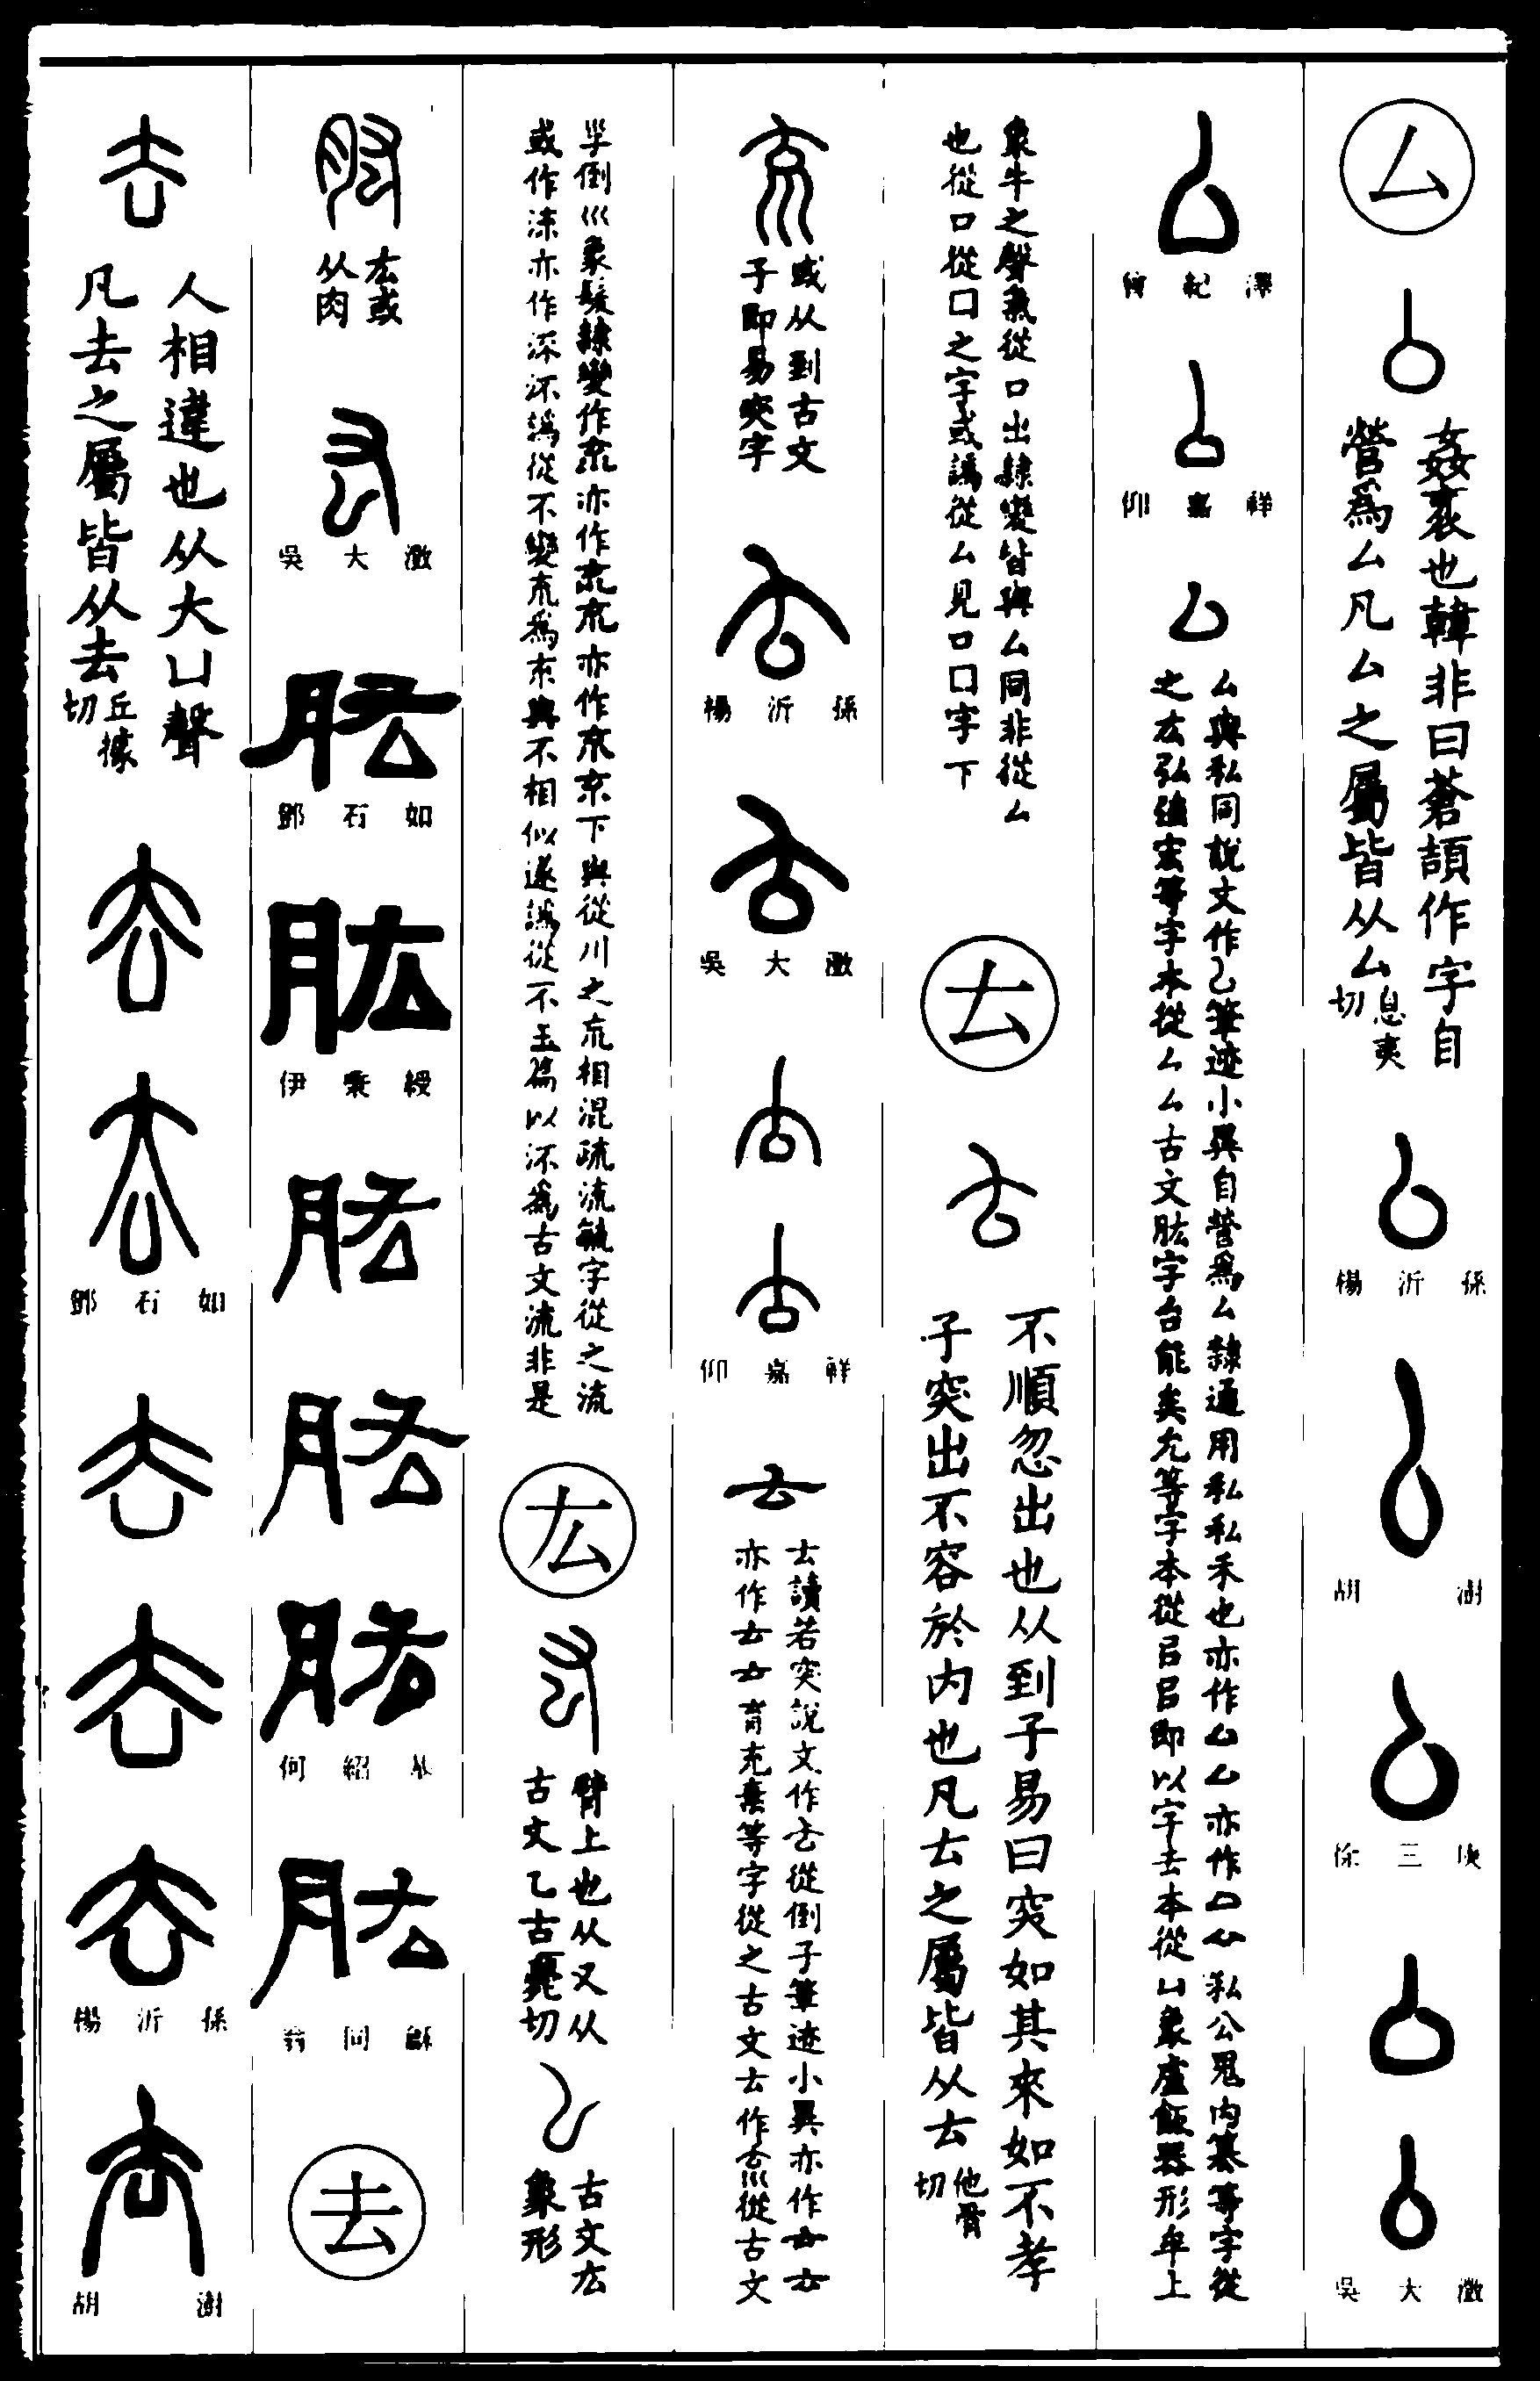 厶
姦衺也韓非曰蒼頡作字自
營爲厶凡厶之屬皆从厶
息夷
切
楊沂孫
胡澍
徐三庚
吳大澂
曾紀澤
仰嘉祥
厶與私同說文作厶筆迹小異自營爲厶隸通用私私禾也亦作厶厶亦作口厸私公鬼內篡等字從
之厷弘強宏等字本從厶厶古文肱字台能矣允等字本從㠯㠯即以字去本從凵象盧飯器形牟上
象牛之聲氣從口出隸變皆與厶同非從厶
也從口從囗之字或譌從厶見口囗字下
𠫓
不順忽出也从到子易曰突如其來如不孝
子突出不容於内也凡𠫓之屬皆从𠫓
他骨
切
或从到古文
子即易突字
楊沂孫
吳大澂
仰嘉祥
𠫓讀若突說文作𠫓從倒子筆迹小異亦作𠫓𠫓
亦作𠫓𠫓育充棄等字從之古文𠫓作㐬巛從古文
㜽倒巛象髮隸變作㐬亦作㐬㐬亦作㐬㐬下與從川之㐬相混疏流毓字從之流
或作涑亦作深沠譌從不變㐬爲朿與不相似遂譌從不玉篇以沠爲古文流非是
厷
臂上也从又从
古文乙古薨切
古文厷
象形
厷或
从肉
吳大澂
鄧石如
伊秉綬
何紹基
翁同龢
去
人相違也从大凵聲
凡去之屬皆从去
丘據
切
鄧石如
楊沂孫
胡澍